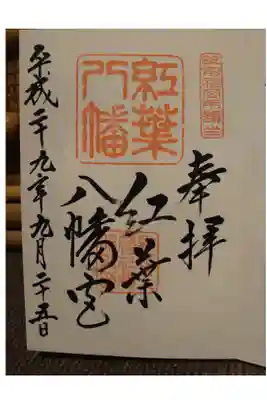 奉拝
紅葉
八幡
紅葉
八幡宮
平成二十九年九月二十五日